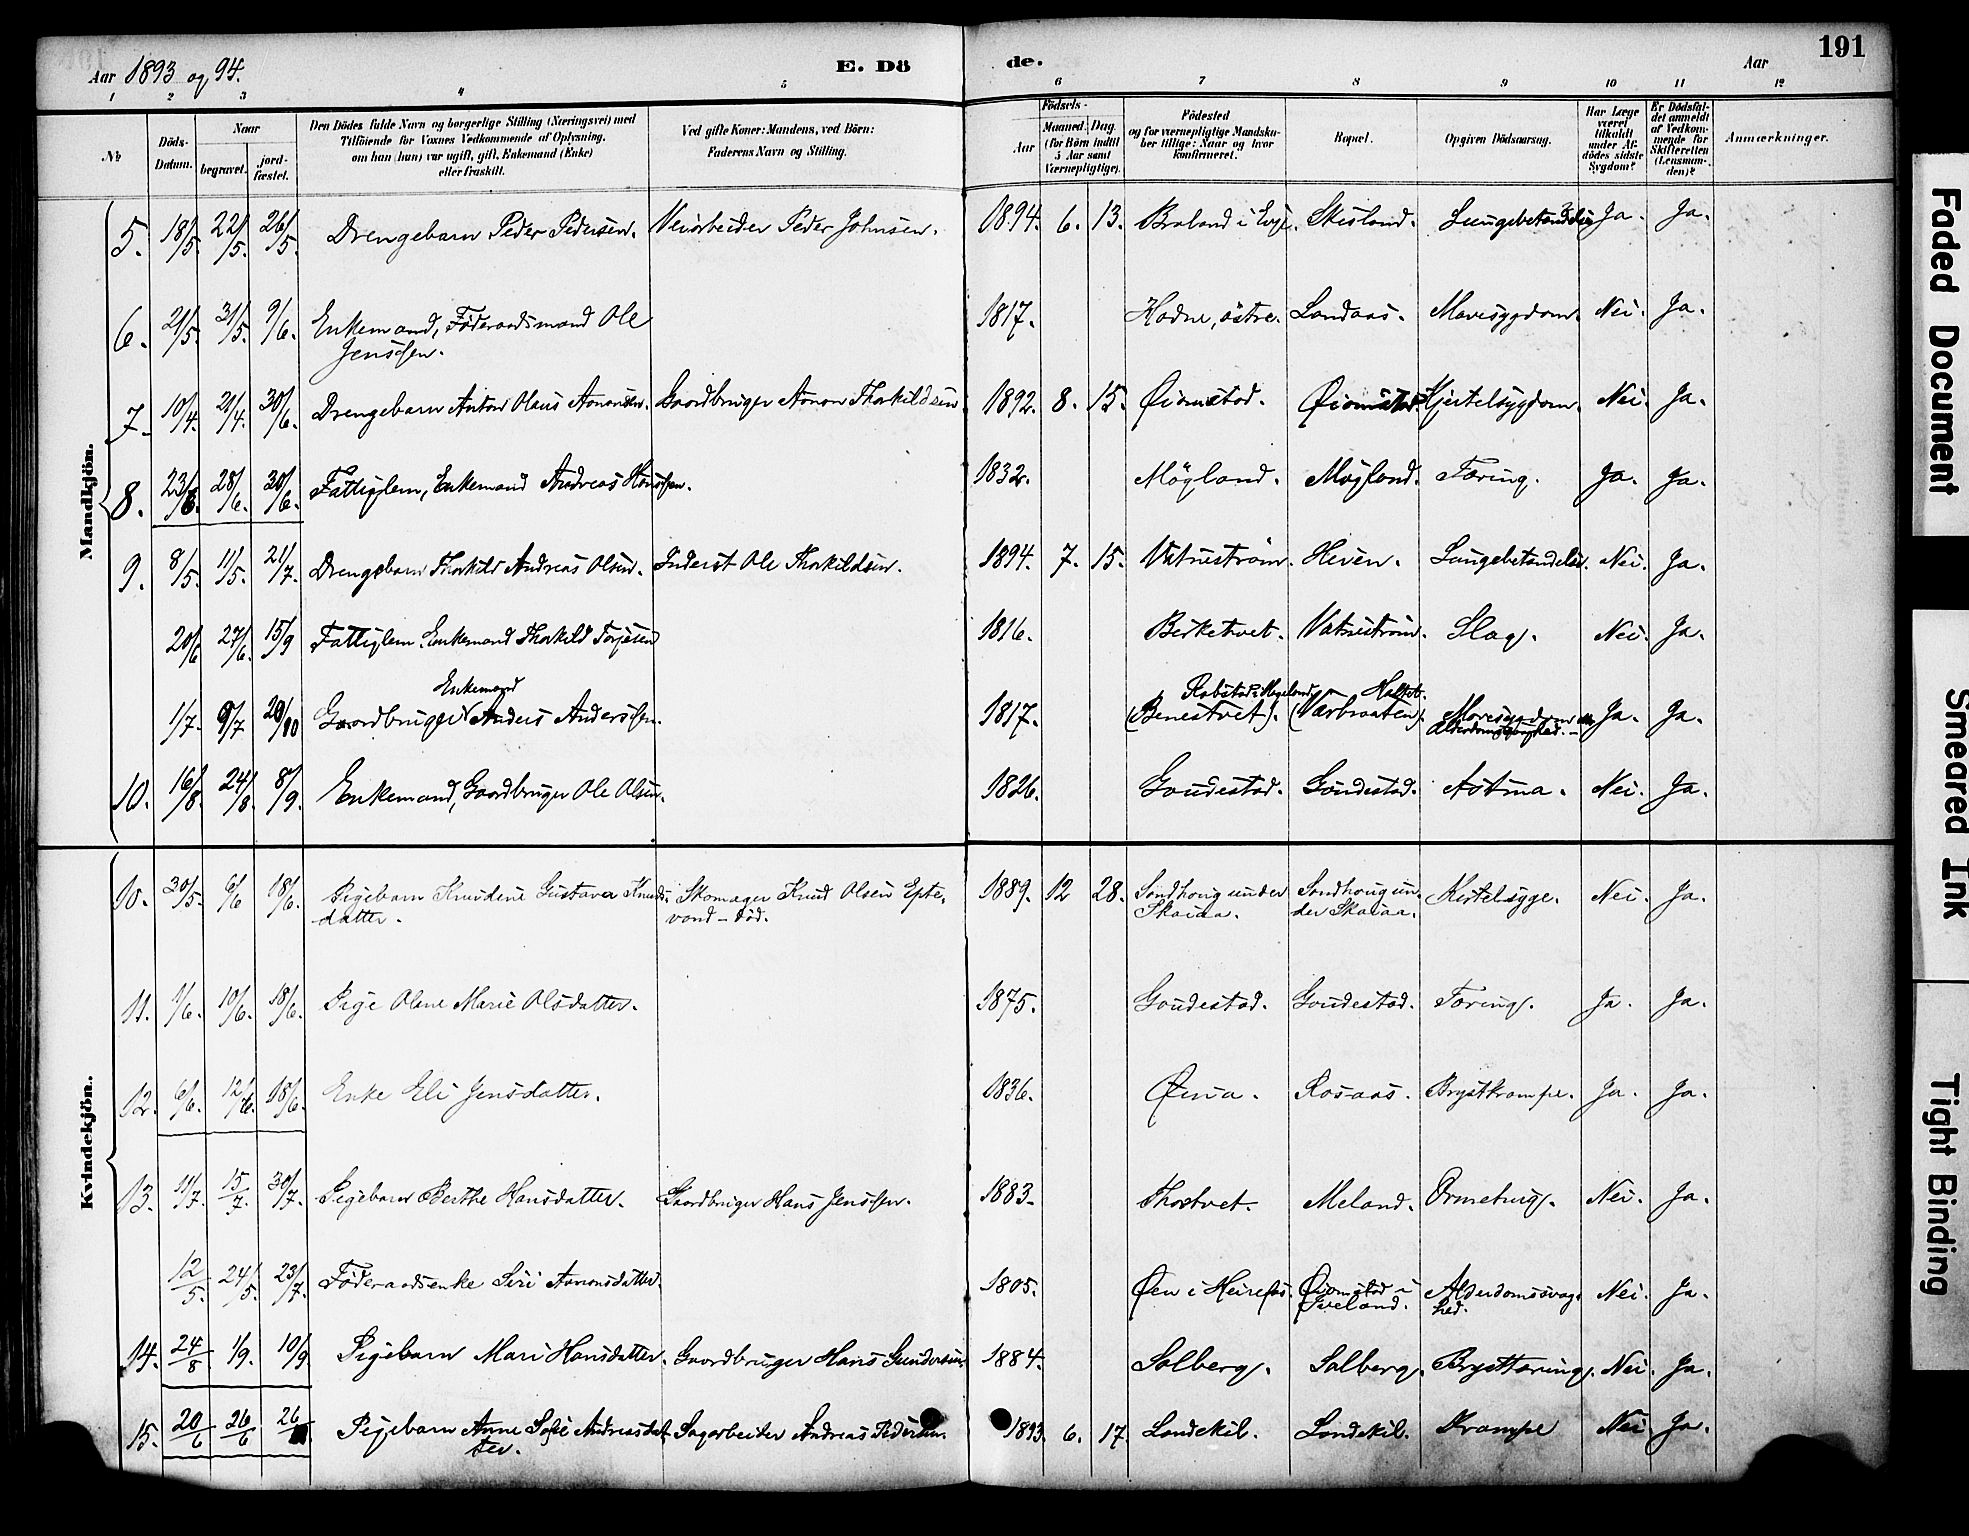 Aar 1893 og 94.
E. Dö
de.
Aar
191
1 2 3 4 5 6 7 8 9 10 11 12
№
Döds-
Datum.
Naar
begravet.
jord-
fæstet.
Den Dödes fulde Navn og borgerlige Stilling (Næringsvei) med
Tilföiende for Voxnes Vedkommende af Oplysning,
om han (hun) var ugift, gift, Enkemand (Enke)
eller fraskilt.
Ved gifte Koner: Mandens, ved Börn:
Faderens Navn og Stilling.
Födsels-
Aar
Maaned. Dag.
(for Börn indtil
5 Aar samt
Værnepligtige).
Födested
og for værnepligtige Mandska-
ber tillige: Naar og hvor
konfirmeret.
Bopæl.
Opgiven Dödsaarsag.
Har Læge
været
tilkaldt
under Af-
dödes sidste
Sygdom?
Er Dödsfal-
det anmeldt
af Vedkom-
mende for
Skifteretten
(Lensman-
den)?
Anmærkninger.
Mandkjön.
5. 18/5. 22/5. 26/5. Drengebarn Peder Pedersen. Veiarbeider Peder Johnsen. 1894. 6. 13. i Evje. Skisland. Lungebetændelse Ja. Ja.
6. 21/5. 31/5. 9/6. Enkemand, Føderaadsmand Ole
Jenssen. 1817. Hodne, østre. Landaas. Mavesygdom. Nei. Ja.
7. 10/4. 21/4. 30/6. Drengebarn Anton Olaus Aanonsen. Gaardbruger Aanon Thorkildsen 1892. 8. 15. Øiomstad. Øiomstad. Hjertelsygdom. Nei. Ja.
8. 23/6. 28/6. 30/6. Fattiglem, Enkemand Andreas Hanssen. 1832. Mögland. Mögland. Tæring. Ja. Ja.
9. 8/5. 11/5. 21/7. Drengebarn Thorkild Andreas Olsen. Inderst Ole Thorkildsen. 1894. 7. 15. Vatneström. Heven. Lungebetændelse. Nei. Ja.
20/6 27/6. 15/9 Fattiglem. Enkemand Thorkild Torjesen 1816. Birketvet. Vatneström. Slag. Nei. Ja.
Enkemand
1/7. 9/7 20/10 Gaardbruger Anders Anderssen. 1817. (Benestvet). (Værbraaten). Mavesygdom Ja. Ja.
10. 16/8. 24/8. 8/9. Enkemand, Gaardbruger Ole Olsen. 1826. Goudestad. Goudestad. Astma. Nei. Ja.
Kvindekjön.
10. 30/5. 6/6 18/6. Pigebarn Knudine Gustava Knuds-
datter. Skomager Knud Olsen Epte-
vand - død. 1889. 12 28. Sandhoug under
Skaiaa. Sandhoug un-
der Skaiaa. Kirtelsyge. Nei. Ja.
11. 1/6. 10/6. 18/6. Pige Olene Marie Olsdatter. 1875. Goudestad. Goudestad. Tæring. Ja. Ja.
12. 6/6. 12/6. 18/6. Enke Eli Jensdatter. 1836. Rosaas. Brystkrampe. Ja. Ja.
13. 11/7. 15/7. 30/7. Pigebarn Berthe Hansdatter. Gaardbruger Hans Jenssen. 1883. Thortvet. Meland. Nei. Ja.
12/5. 24/5. 23/7. Føderaadsenke Siri Aanonsdatter. 1805. Øen i Heirefos. Øiomstad i
Iveland. Alderdomssvag-
hed. Nei. Ja.
14. 24/8 1/9. 10/9 Pigebarn Mari Hansdatter. Gaardbruger Hans Gundersen. 1884. Solberg. Solberg. Brysttæring. Nei. Ja.
15. 20/6 26/6 26/ Pigebarn Anne Sofie Andreasdat-
ter. Sagarbeider Andreas Pedersen. 1893. 6. 17. Landekil. Landekil. Krampe Nei Ja.
Faded Document
Smeared Ink
Tight Binding